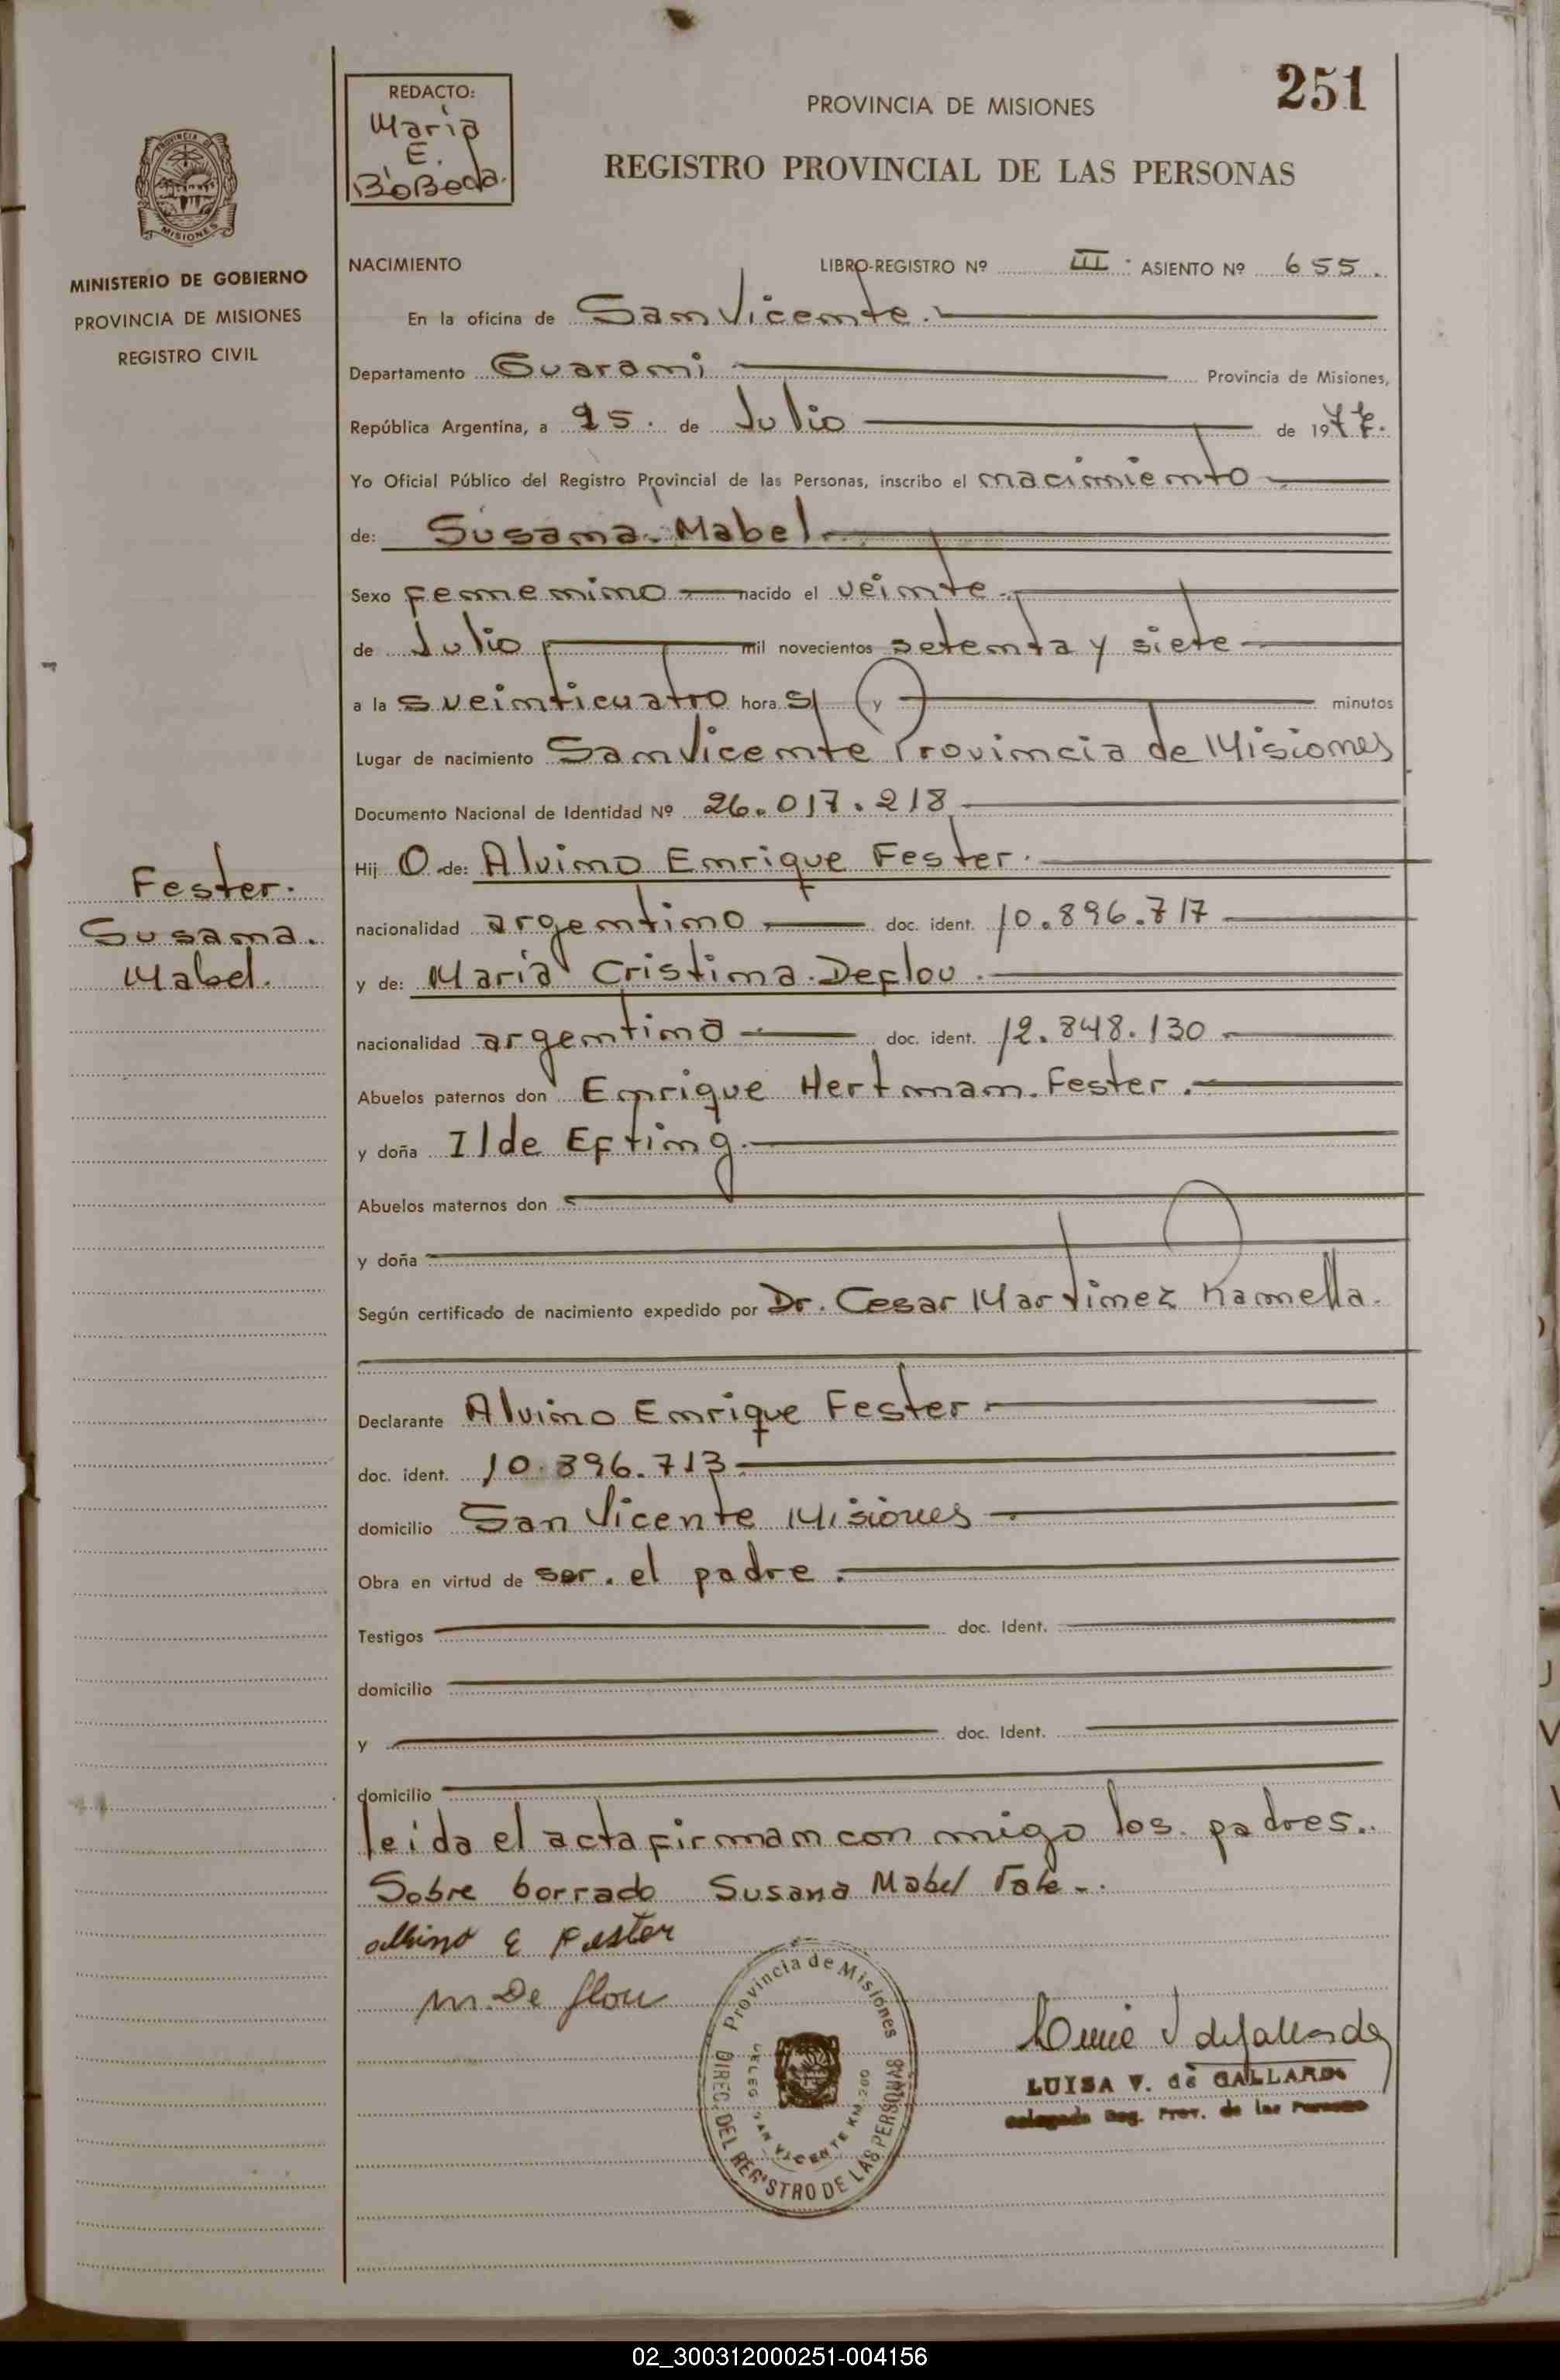 251
REDACTO:
Maria
E.
BóBeda.
PROVINCIA DE MISIONES
REGISTRO PROVINCIAL DE LAS PERSONAS
PROVINCIA DE MISIONES
MINISTERIO DE GOBIERNO
PROVINCIA DE MISIONES
REGISTRO CIVIL
NACIMIENTO LIBRO-REGISTRO Nº III. ASIENTO Nº 655.
En la oficina de San Vicente.
Departamento Guarani Provincia de Misiones,
República Argentina, a 25. de Julio de 1977.
Yo Oficial Público del Registro Provincial de las Personas, inscribo el nacimiento
de: Susana Mabel
Sexo femenino nacido el veinte
de Julio mil novecientos setenta y siete
a la s veinticuatro hora s/ (y) minutos
Lugar de nacimiento San Vicente Provincia de Misiones
Documento Nacional de Identidad Nº 26.017.218
Hij O de: Alvino Enrique Fester.
Fester.
Susana.
Mabel.
nacionalidad argentino doc. ident. 10.896.717
y de: Maria Cristina Deflou.
nacionalidad argentina doc. ident. 12.848.130
Abuelos paternos don Enrique Hertman Fester.
y doña Ilde Efting.
Abuelos maternos don
y doña
Según certificado de nacimiento expedido por Dr. Cesar Martinez Ramella.
Declarante Alvino Enrique Fester.
doc. ident. 10.896.713
domicilio San Vicente Misiones
Obra en virtud de ser. el padre.
Testigos doc. Ident.
domicilio
y doc. Ident.
domicilio
leida el acta firman con migo los padres.
Sobre borrado Susana Mabel Vale.
Albino E Fester
M. De flou
Provincia de Misiones
DIREC. DEL REGISTRO DE LAS PERSONAS
SAN VICENTE KM.
LUISA V. de GALLARDO
Delegada Reg. Prov. de las Personas
02_300312000251-004156